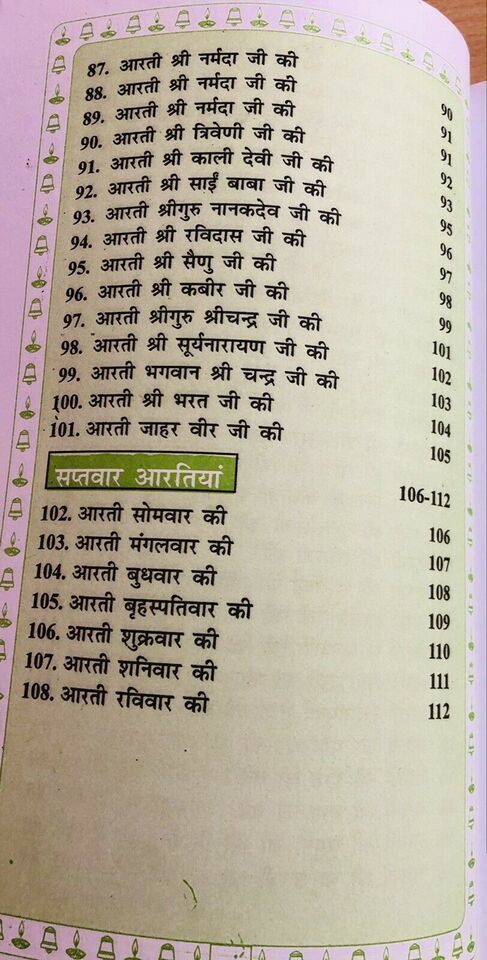 87. आरती श्री नर्मदा जी की 90
88. आरती श्री नर्मदा जी की 91
89. आरती श्री नर्मदा जी की 91
90. आरती श्री त्रिवेणी जी की 92
91. आरती श्री काली देवी जी की 93
92. आरती श्री साईं बाबा जी की 95
93. आरती श्रीगुरु नानकदेव जी की 96
94. आरती श्री रविदास जी की 97
95. आरती श्री सैणु जी की 98
96. आरती श्री कबीर जी की 99
97. आरती श्रीगुरु श्रीचन्द्र जी की 101
98. आरती श्री सूर्यनारायण जी की 102
99. आरती भगवान श्री चन्द्र जी की 103
100. आरती श्री भरत जी की 104
101. आरती जाहर वीर जी की 105
सप्तवार आरतियां 106-112
102. आरती सोमवार की 106
103. आरती मंगलवार की 107
104. आरती बुधवार की 108
105. आरती बृहस्पतिवार की 109
106. आरती शुक्रवार की 110
107. आरती शनिवार की 111
108. आरती रविवार की 112